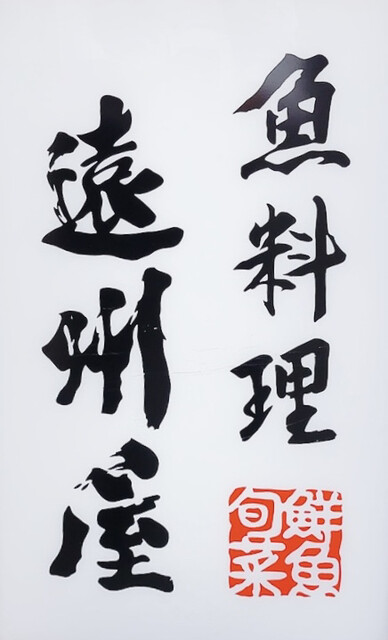 魚料理
鮮魚
旬菜
遠州屋